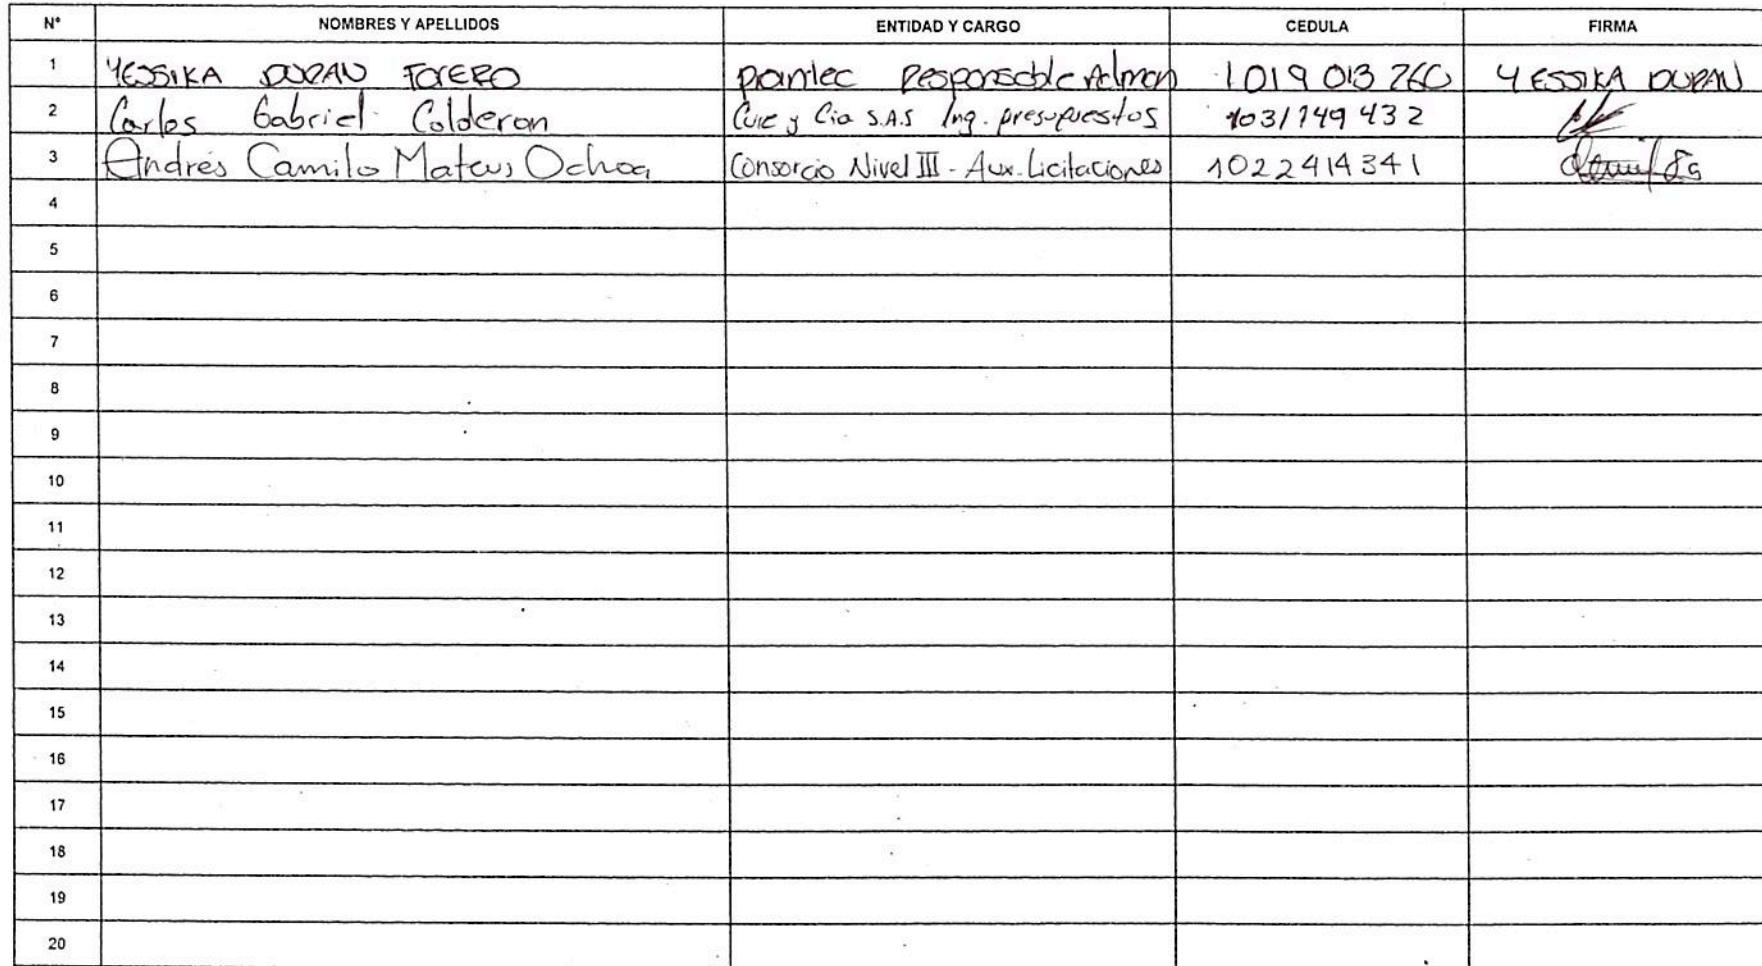 N° NOMBRES Y APELLIDOS ENTIDAD Y CARGO CEDULA FIRMA
1 YESSIKA DURAN FORERO Responsable Admon 1019 013 260 YESSIKA DURAN
2 Carlos Gabriel Calderon Cure y Cia S.A.S Ing. presupuestos 1031149 432
3 Andrés Camilo Mateus Ochoa Consorcio Nivel III - Aux. Licitaciones 1022414341
4
5
6
7
8
9
10
11
12
13
14
15
16
17
18
19
20